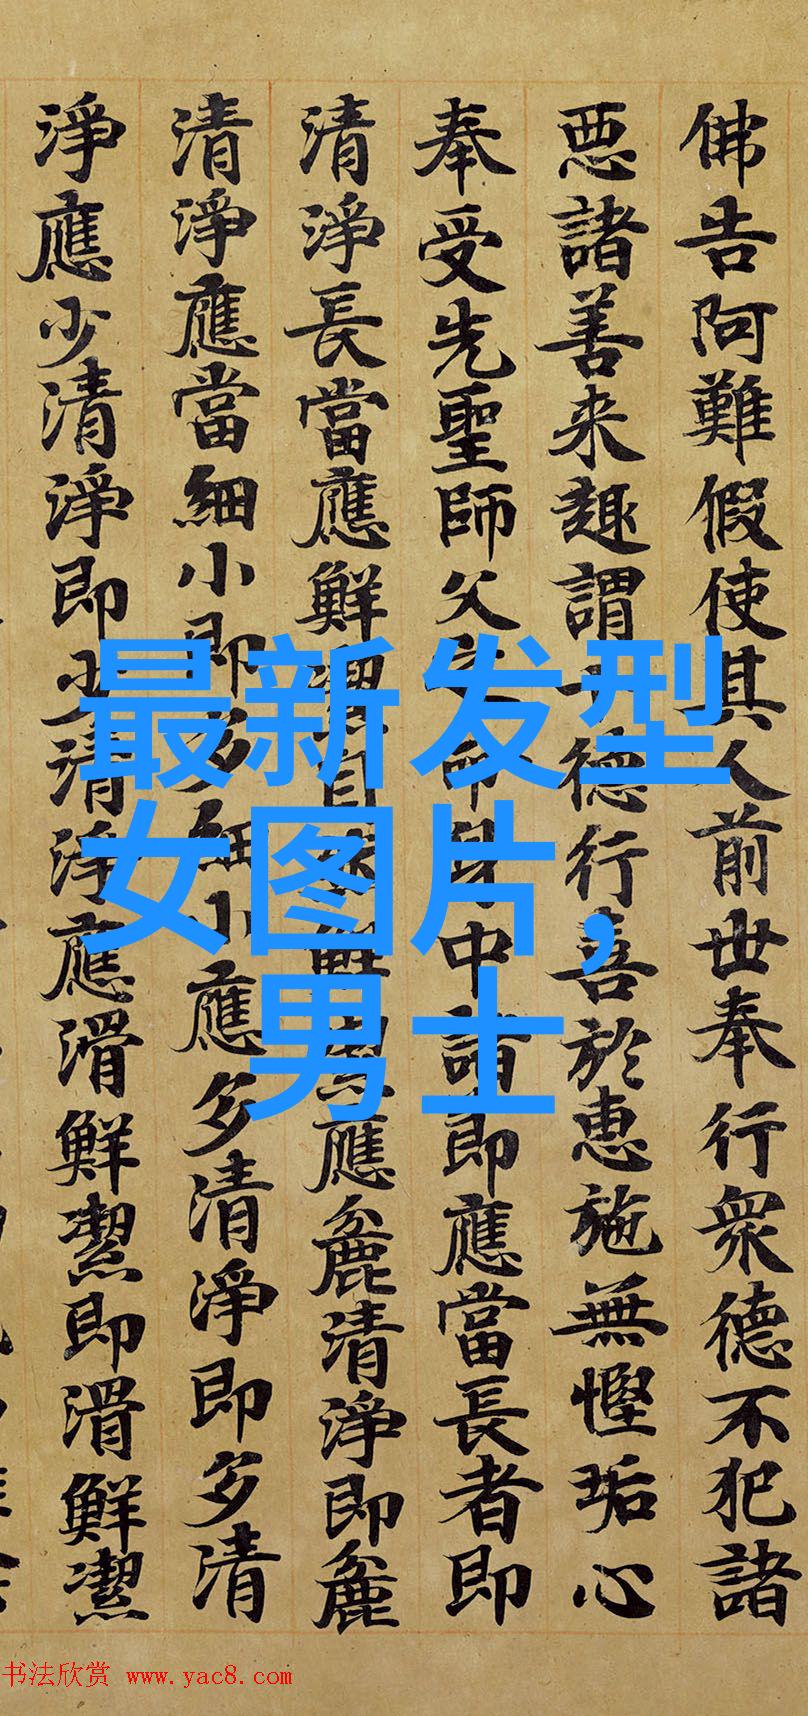 佛告阿難假使其人前世奉行衆德不犯諸
惡諸善来趣謂德行喜於惠施無慳垢心
奉受先聖師父中諸即應當長者即
清淨長當應鮮潔自應麁清淨即麁
清淨應當細小即多細小應多清淨即多清
淨應少清淨即少清淨應滑鮮潔即滑鮮潔
最新发型
女图片，
男士
书法欣赏 www.yac8.com